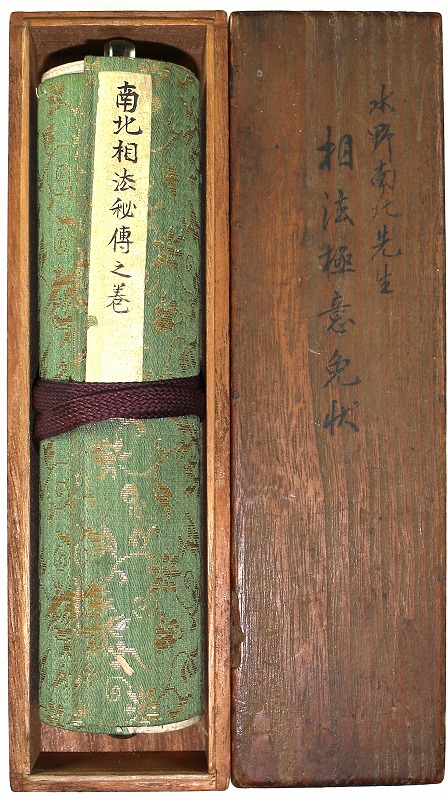 南北相法秘傳之巻
水野南北先生
相法極意免状